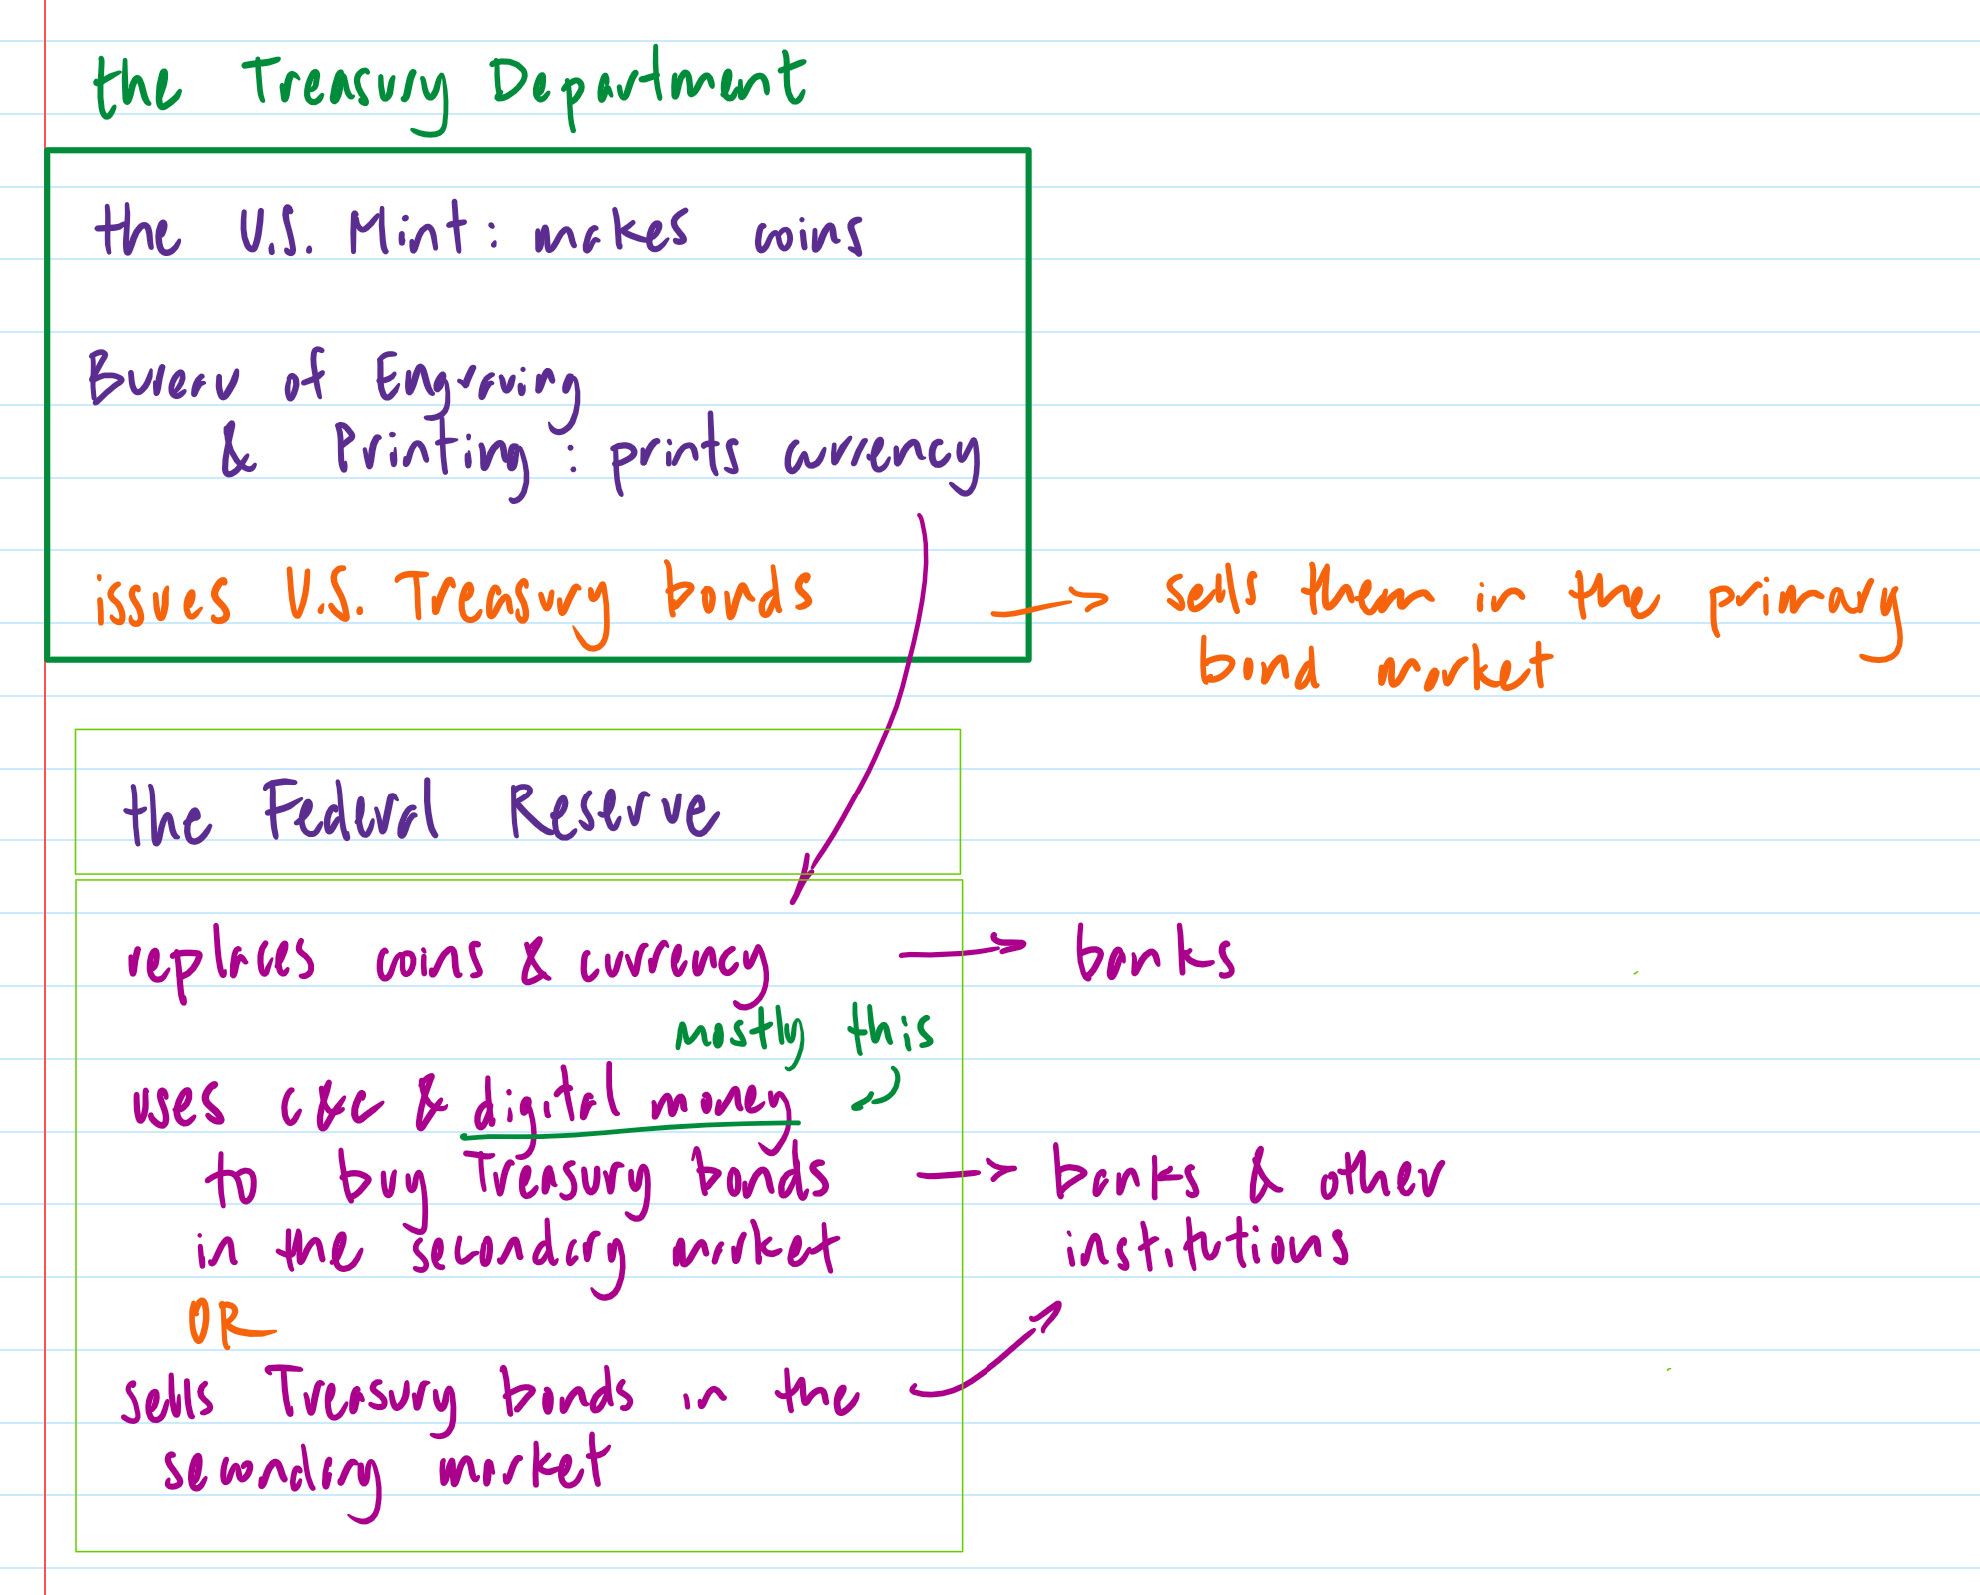 the Treasury Department
the U.S. Mint: makes coins
Bureau of Engraving
& Printing: prints currency
issues U.S. Treasury bonds
sells them in the primary
bond market
the Federal Reserve
replaces coins & currency
banks
mostly this
uses c&c & digital money
to buy Treasury bonds
in the secondary market
banks & other
institutions
OR
sells Treasury bonds in the
secondary market